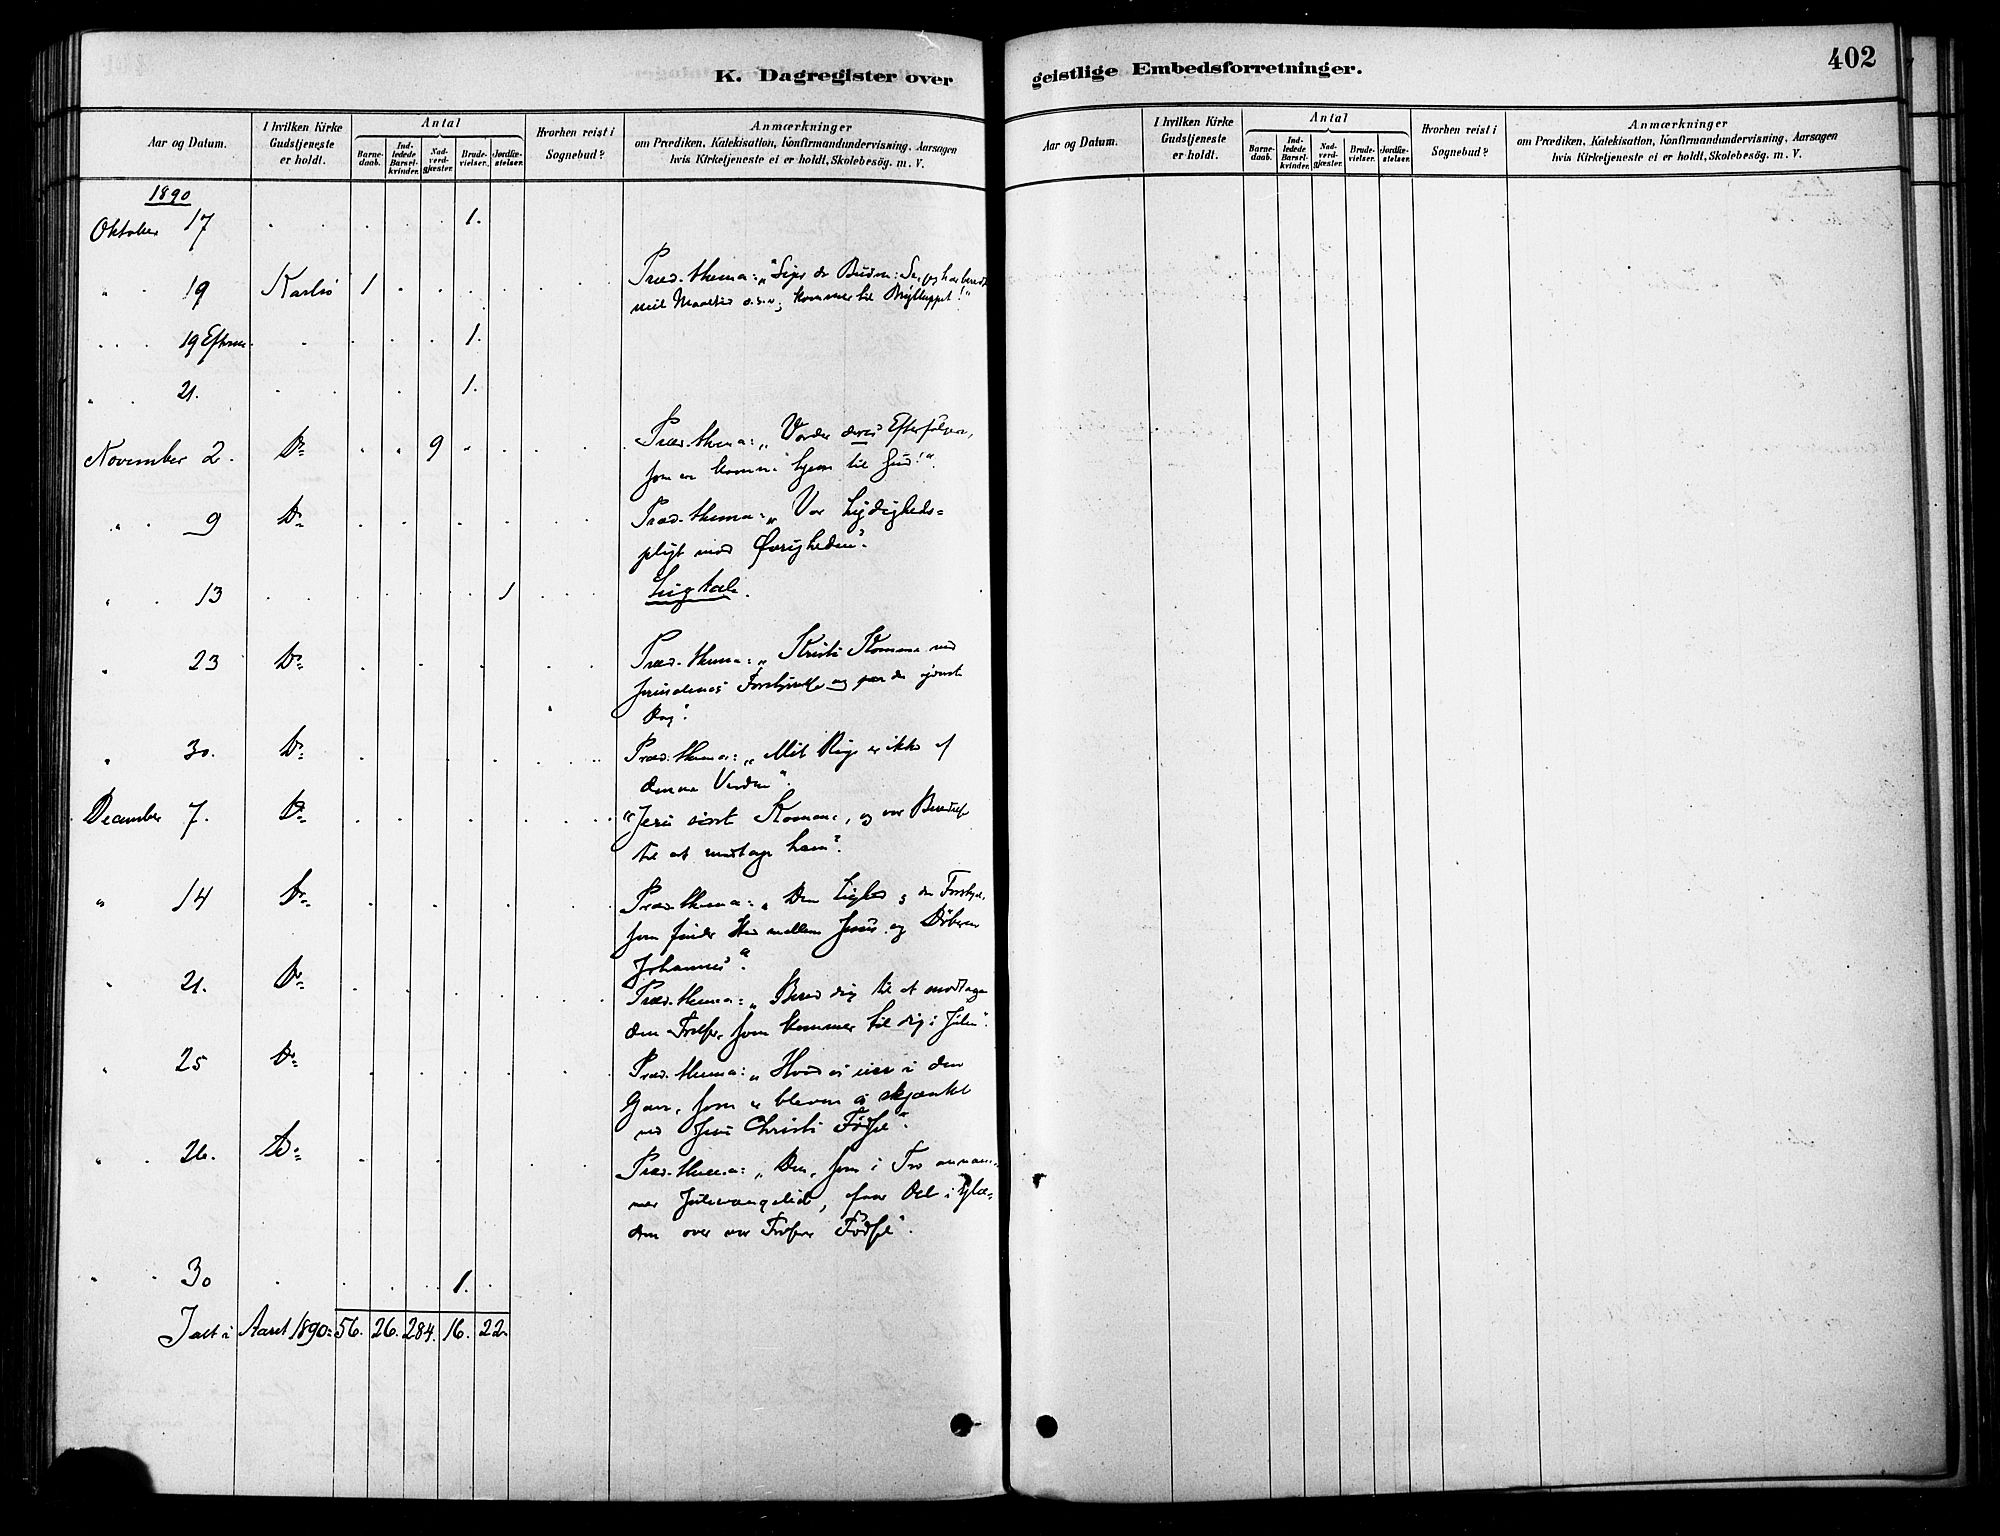 K. Dagregister over
geistlige Embedsforretninger.
402
Aar og Datum.
I hvilken Kirke
Gudstjeneste
er holdt.
Antal
Barne-
daab.
Ind-
ledede
Barsel-
kvinder.
Nad-
verd-
gjæster.
Brude-
vielser.
Jordfæ-
stelser.
Hvorhen reist i
Sognebud?
Anmærkninger
om Prædiken, Katekisation, Konfirmandundervisning, Aarsagen
hvis Kirketjeneste ei er holdt, Skolebesög. m. V.
1890
Oktober 17 1.
" 19 Karlsö 1 Præd. thema: "Siger de Budne: Se, jeg har beredt
mit Maaltid o.s.v; kommer til Bryllupet!"
19 Efterm. 1.
" 21. 1.
November 2. Do 9 Præd. thema: "Vorder deres Efterfølgere,
som ere komne hjem til Gud!"
" 9 Do Præd. thema: "Vor Lydigheds=
pligt mod Øvrigheden".
" 13 1 Ligtale.
" 23 Do Præd. thema: "Kristi Komme ved
Jerusalems Forstyrrelse og paa den yderste
Dag".
" 30. Do Præd. thema: "Mit Rige er ikke af
denne Verden".
December 7. Do "Jesu sidst Komme, og vor Beredelse
til at modtage ham".
" 14 Do Præd. thema: "Den Lighed og den Forskjel,
som finder Sted mellem Jesus og Døberen
Johannes".
" 21. Do Præd. thema: "Bered dig til at modtage
den Frelser, som kommer til dig i Julen".
" 25 Do Præd. thema: "Hvad vi i den
Gave, som er bleven os skjænket
ved Jesu Christi Fødsel".
" 26. Do Præd. thema: "Den, som i Tro annam=
mer Juleevangeliet, faar Del i Glæ=
den over vor Frelsers Fødsel".
" 30 1.
Ialt i Aaret 1890: 56. 26. 284. 16. 22.
Aar og Datum.
I hvilken Kirke
Gudstjeneste
er holdt.
Antal
Barne-
daab.
Ind-
ledede
Barsel-
kvinder.
Nad-
verd-
gjæster.
Brude-
vielser.
Jordfæ-
stelser.
Hvorhen reist i
Sognebud?
Anmærkninger
om Prædiken, Katekisation, Konfirmandundervisning, Aarsagen
hvis Kirketjeneste ei er holdt, Skolebesög. m. V.